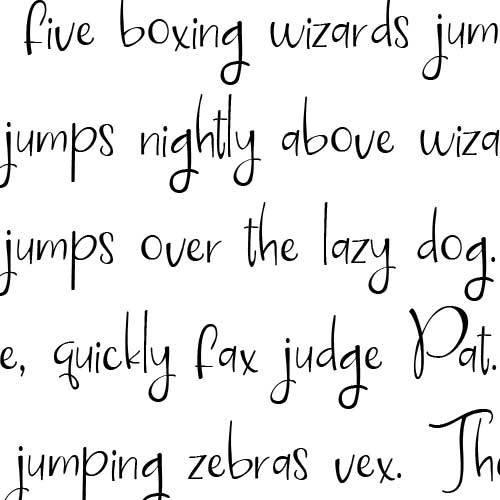 five boxing wizards jum
jumps nightly above wiza
jumps over the lazy dog.
e, quickly fax judge Pat.
jumping zebras vex. The